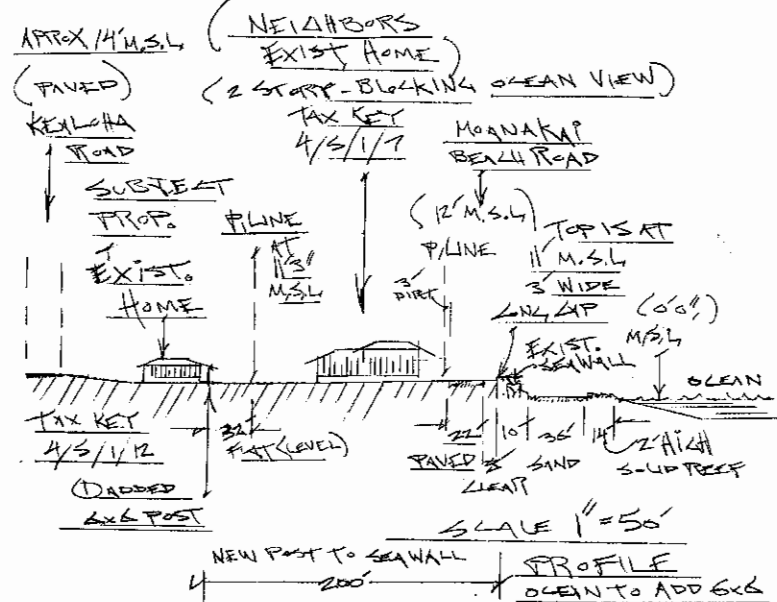 APPROX 14' M.S.L
(PAVED)
KEALOHA
ROAD
(NEIGHBORS
EXIST HOME)
(2 STORY-BLOCKING OCEAN VIEW)
TAX KEY
4/5/1/7
MOANAKAI
BEACH ROAD
SUBJECT
PROP.
EXIST.
HOME
P/LINE
AT
11'3"
M.S.L
(12' M.S.L)
P/LINE
3'
DIRT
TOP IS AT
11' M.S.L
3' WIDE
CNC CAP
EXIST.
SEAWALL
(0'0",)
M.S.L
OCEAN
TAX KEY
4/5/1/12
① ADDED
6x6 POST
32'
FLAT (LEVEL)
22'
PAVED
3'
CLEAR
10'
36'
SAND
14'
2' HIGH
SOLID REEF
SCALE 1"=50'
NEW POST TO SEAWALL
200'
PROFILE
OCEAN TO ADD 6x6